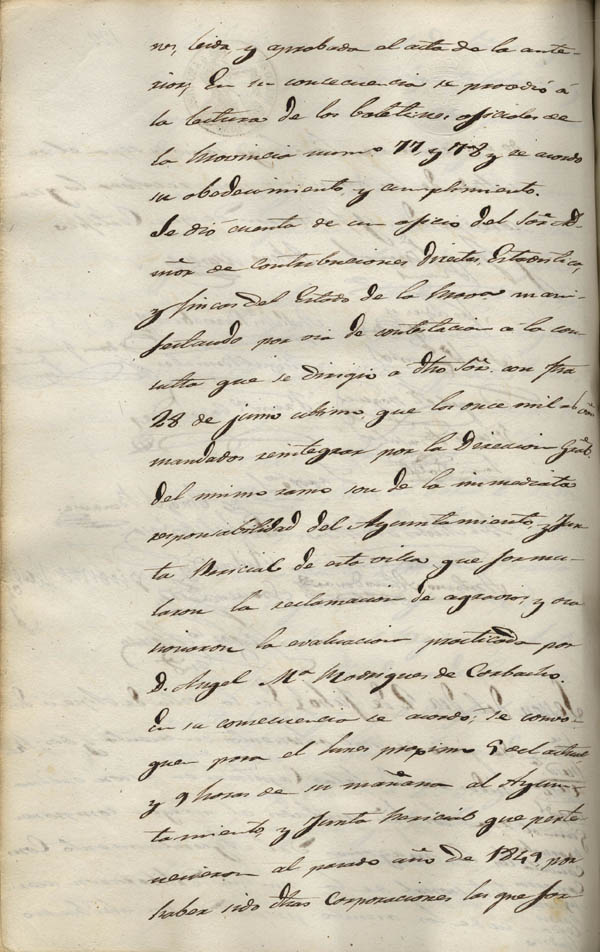 nes, leida y aprobada el acta de la ante-
rior; En su consecuencia se procedió á
la lectura de los boletines oficiales de
la Provincia num.º 77, y 78 y se acordó
su obedecimiento, y cumplimiento.
Se dió cuenta de un oficio del Sor. Ad-
mor de Contribuciones Directas, Estadistica,
y fincas del Estado de la Prova mani-
festando por via de contestacion a la con-
sulta que se dirigio a dho Sor. con fha
28 de junio ultimo, que los once mil
mandados reintegrar por la Direccion Gral.
del mismo ramo son de la inmediata
responsabilidad del Ayuntamiento, y Jun-
ta Pericial de esta villa que formu-
laron la reclamacion de agravios, y oca-
sionaron la evaluacion practicada por
D. Angel Mª Rodrigues de Corbacho.
En su consecuencia se acordo; se convo-
quen para el lunes proximo 5 del actual
y 9 horas de su mañana al Ayun-
tamiento, y Junta Pericial, que perte-
necieron al pasado año de 1849 por
haber sido dhas Corporaciones las que for